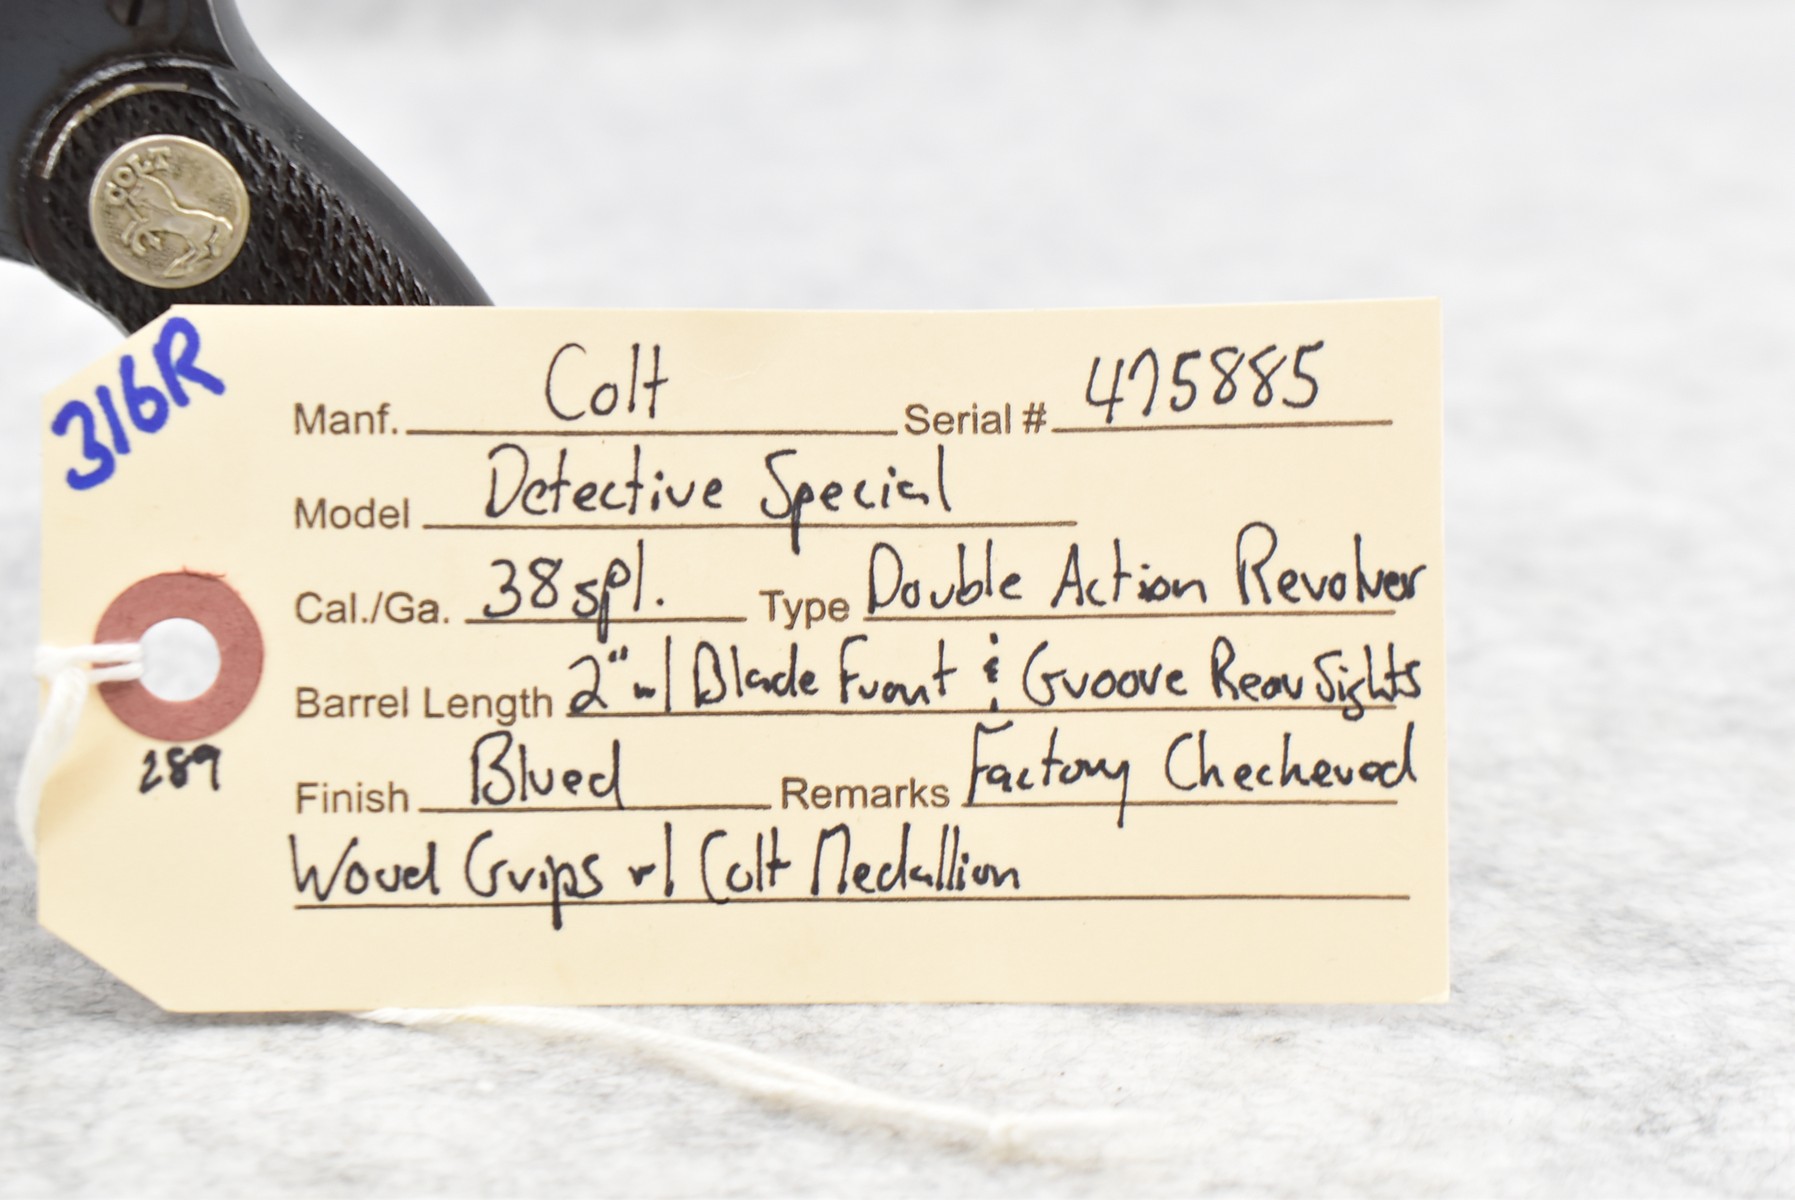 COLT
316R
Manf. Colt Serial # 475885
Model Detective Special
Cal./Ga. 38 spl. Type Double Action Revolver
Barrel Length 2" w/ Blade Front & Groove Rear Sights
289
Finish Blued Remarks Factory Checkered
Wood Grips w/ Colt Medallion